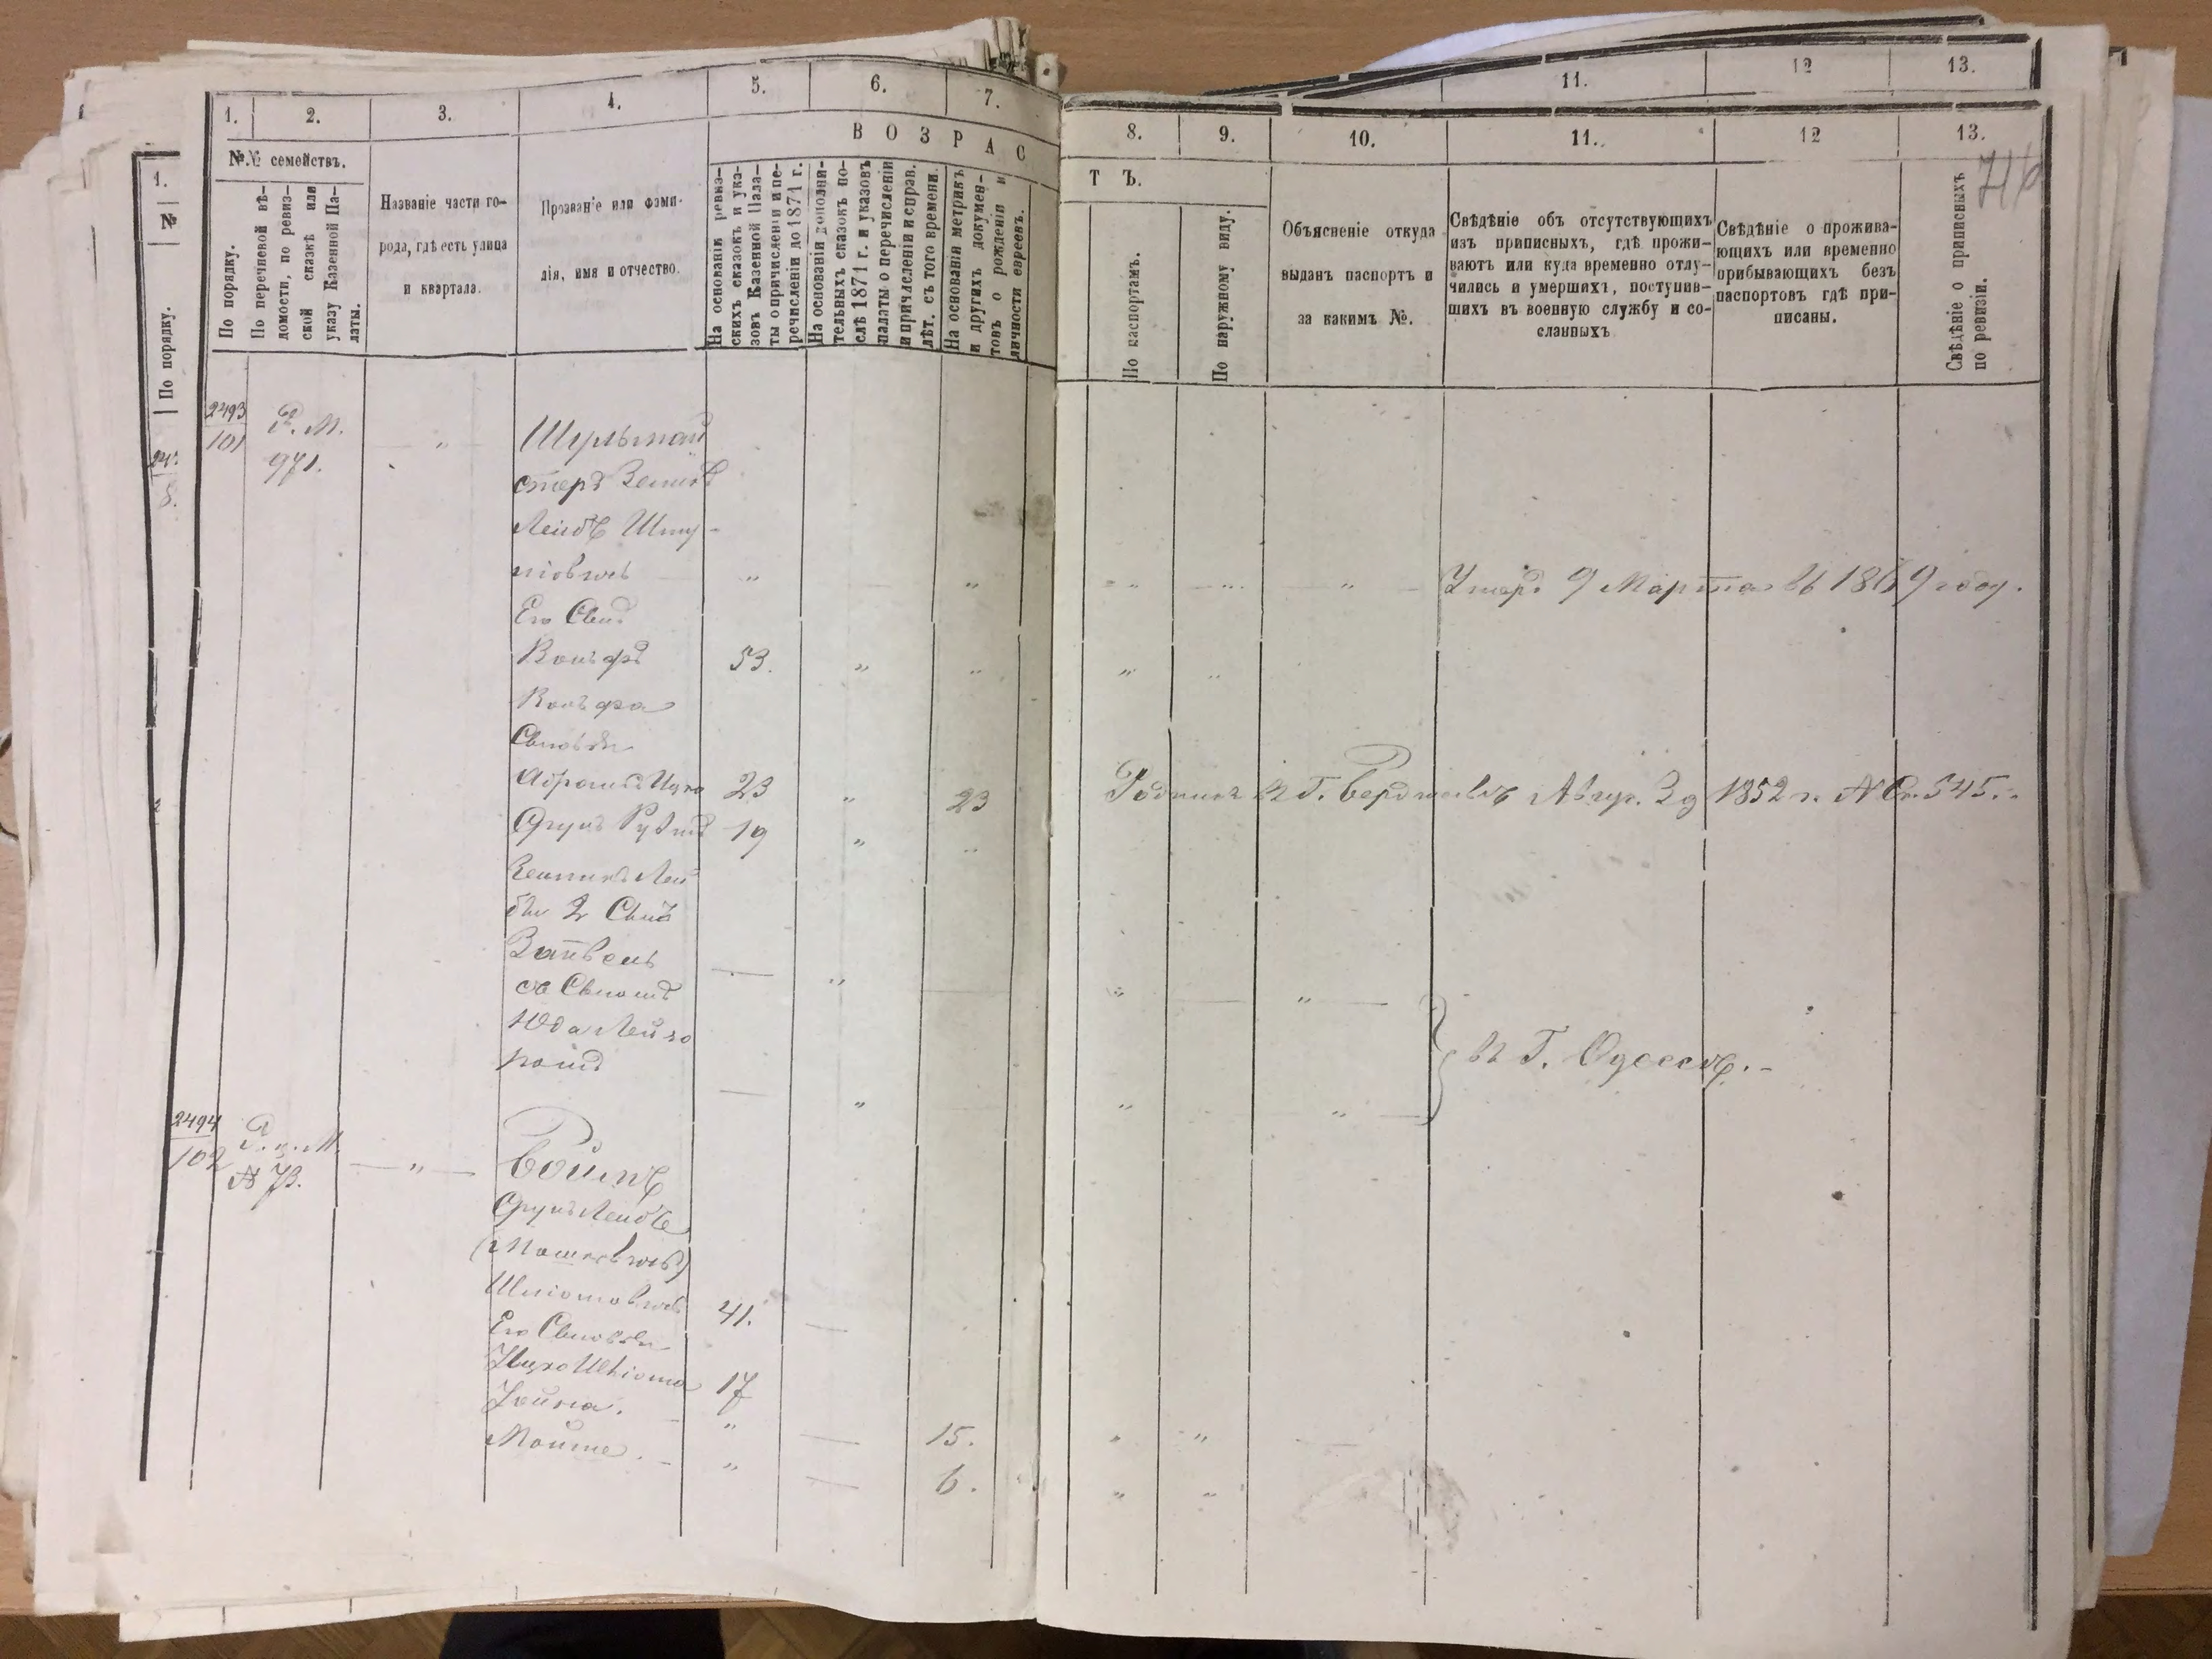 11.
12
13.
1.
2.
3.
4.
5.
6.
7.
8.
9.
10.
11.
12
13.
В О З Р А С
Т Ъ.
№№ семействъ.
По порядку.
По перечневой вѣ-
домости, по ревиз-
ской сказкѣ или
указу Казенной Па-
латы.
Названіе части го-
рода, гдѣ есть улица
и квартала.
Прозваніе или фами-
лія, имя и отчество.
На основаніи ревиз-
скихъ сказокъ и ука-
зовъ Казенной Пала-
ты о причисленіи и пе-
речисленіи до 1871 г.
На основаніи дополни-
тельныхъ сказокъ по-
слѣ 1871 г. и указовъ
палаты о перечисленіи
и причисленіи и справ.
лѣт. съ того времени.
На основаніи метрикъ
и другихъ докумен-
товъ о рожденіи и
личности евреевъ.
По паспортамъ.
По наружному виду.
Объясненіе откуда
выданъ паспортъ и
за какимъ №.
Свѣдѣніе объ отсутствующихъ
изъ приписныхъ, гдѣ прожи-
ваютъ или куда временно отлу-
чились и умершихъ, поступив-
шихъ въ военную службу и со-
сланныхъ
Свѣдѣніе о прожива-
ющихъ или временно
прибывающихъ безъ
паспортовъ гдѣ при-
писаны.
Свѣдѣніе о приписныхъ
по ревизіи.
1.
№
По порядку.
8.
2493
101
Р. М.
971.
"
Шульмай
стеръ
Лейбъ Шму-
"
"
"
"
Умеръ 9 Марта въ 1869 году.
Его Сынъ
Вольфъ 53. " " " "
Вольфа
Сыновья
Абрамъ Ицко 23 " 23
Родился въ Г. Бердичевѣ Авгус. 1852 г. № 545.
Срулъ Рувинъ 19 " "
Лей
бы 2 Сынъ
Зайвель
съ Сыномъ — " " "
Юда Лейзо
ромъ — " " "
въ Г. Одессѣ.
2494
102
№ 73.
"
Боймъ
Срулъ Лейбъ
(Мошковичъ)
Шліомовичъ 41.
Его Сыновья
Ицко Шліома 17
Хаимъ. " 15. " "
Мойше. " 6. " "